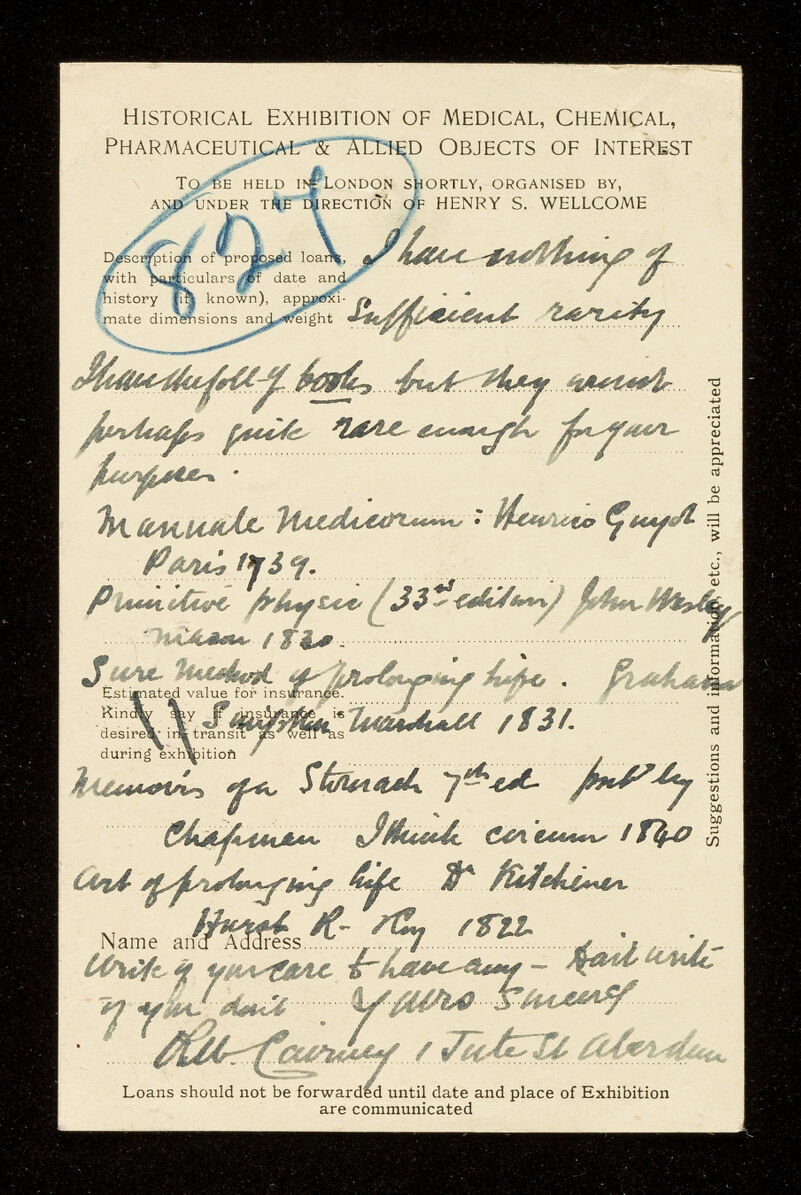 HISTORICAL EXHIBITION OF MEDICAL, CHEMICAL,
PHARMACEUTICAL & ALLIED OBJECTS OF INTEREST
TO BE HELD IN LONDON SHORTLY, ORGANISED BY,
AND UNDER THE DIRECTION OF HENRY S. WELLCOME
827
Description of proposed loans,
with particulars of date and
history (if known), approxi-
mate dimensions and weight
I have nothing of
sufficient rarity
I have the foll-g books but they are not
perhaps quite rare enough for your
purposes.
Manuale Medicorum: Henrico Guyot
Paris 1739.
Primitive Physic (33rd edition) John Wesley
Mason 1830.
Sure Method of prolonging life. Graham
Estimated value for insurance.
Kindly say if insurance is
desired in transit as well as
during exhibition
Simpkin Marshall 1831.
Memoirs of a Stomach 7th ed pubd by
Chapman I think circum 1840
Art of prolonging life Dr Kitchiner
Hurst R- 1822
Name and Address
Write if you care to have any - Dont write
if you dont Yours Sincerely
Cairney 1 Jute St Aberdeen
Loans should not be forwarded until date and place of Exhibition
are communicated
Suggestions and information, etc., will be appreciated